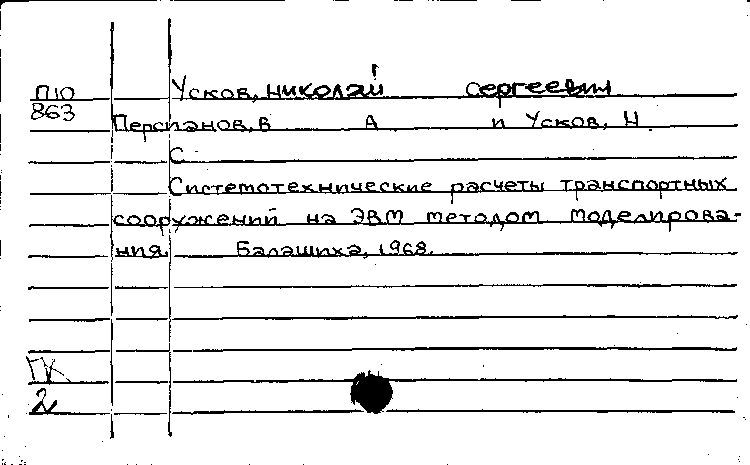 Усков, Николай Сергеевич
П10
863
Перспанов, В А и Усков, Н.
С.
Системотехнические расчеты транспортных
сооружений на ЭВМ методом моделирова-
ния. Балашиха, 1968.
ПК
2